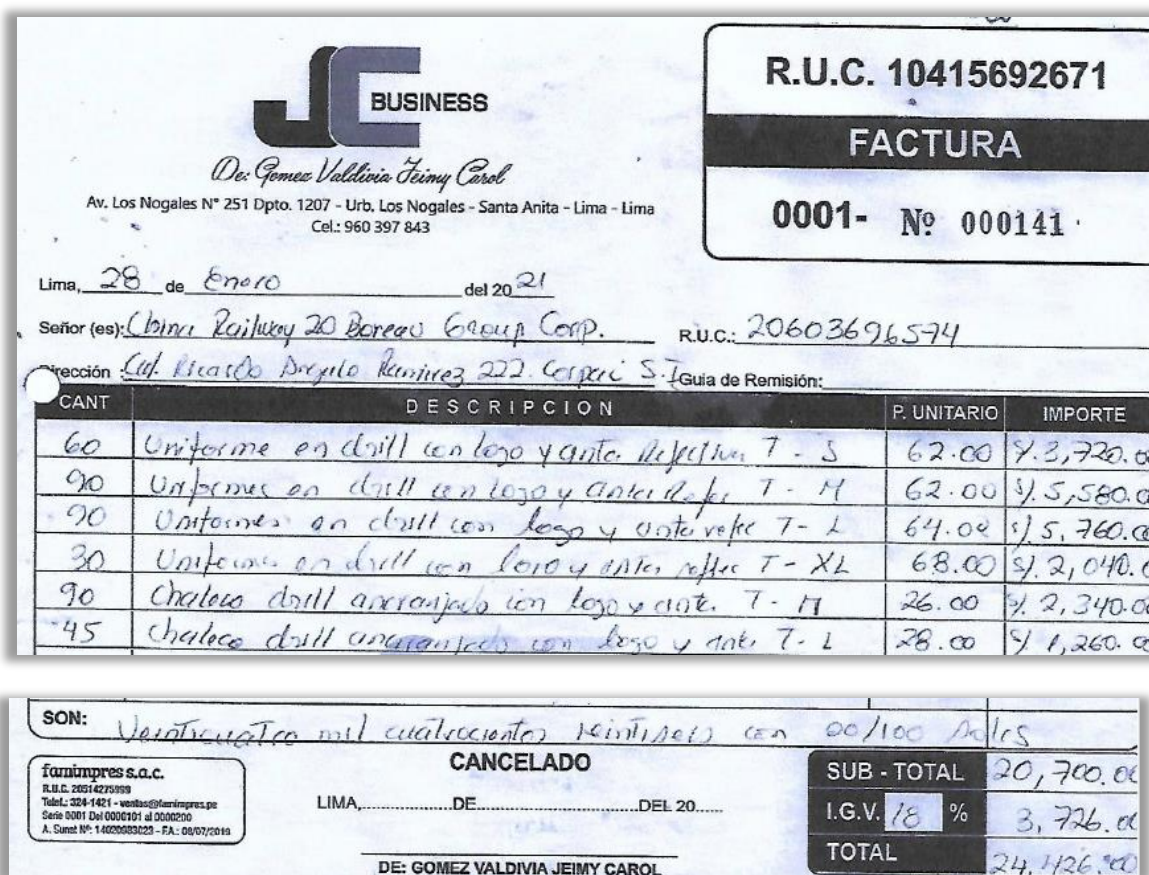 JC BUSINESS
De: Gomez Valdivia Jeimy Carol
Av. Los Nogales N° 251 Dpto. 1207 - Urb. Los Nogales - Santa Anita - Lima - Lima
Cel.: 960 397 843
R.U.C. 10415692671
FACTURA
0001- Nº 000141
Lima, 28 de Enero del 2021
Señor (es): China Railway 20 Bureau Group Corp. R.U.C.: 20603696574
Dirección Ricardo Angulo Ramirez 222 Corpac S.I Guia de Remisión:
CANT DESCRIPCION P. UNITARIO IMPORTE
60 Uniforme en drill con logo y cinta T - S 62.00 S/. 3,720.00
90 Uniformes en drill con logo y cinta T - M 62.00 S/. 5,580.00
90 Uniformes en drill con logo y cinta T - L 64.00 S/. 5,760.00
30 Uniforme en drill con logo y T - XL 68.00 S/. 2,040.0
90 Chaleco drill anaranjado con logo y cint. T - M 26.00 S/. 2,340.00
45 Chaleco drill anaranjado con logo y T - L 28.00 S/. 1,260.00
SON: Veinticuatro mil cuatrocientos veintiseis con 00/100 Soles
famimpres s.a.c.
R.U.C. 20514275999
Telef.: 324-1421 - ventas@famimpres.pe
Serie 0001 Del 0000101 al 0000200
A. Sunat Nº: 14020983023 - F.A.: 08/07/2019
CANCELADO
LIMA,............DE............DEL 20......
DE: GOMEZ VALDIVIA JEIMY CAROL
SUB - TOTAL 20,700.00
I.G.V. 18 % 3,726.00
TOTAL 24,426.00